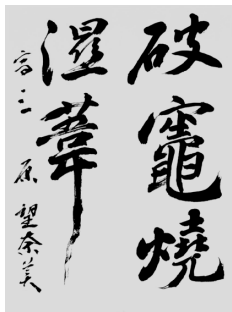 破竈燒
濕葦
高三 原 望奈美